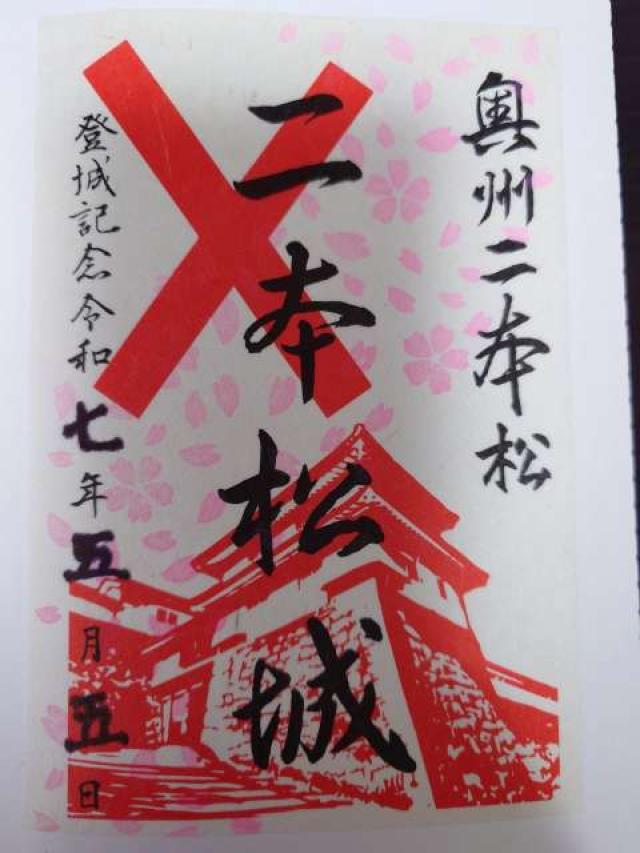 奥州二本松
二本松城
登城記念令和七年五月五日